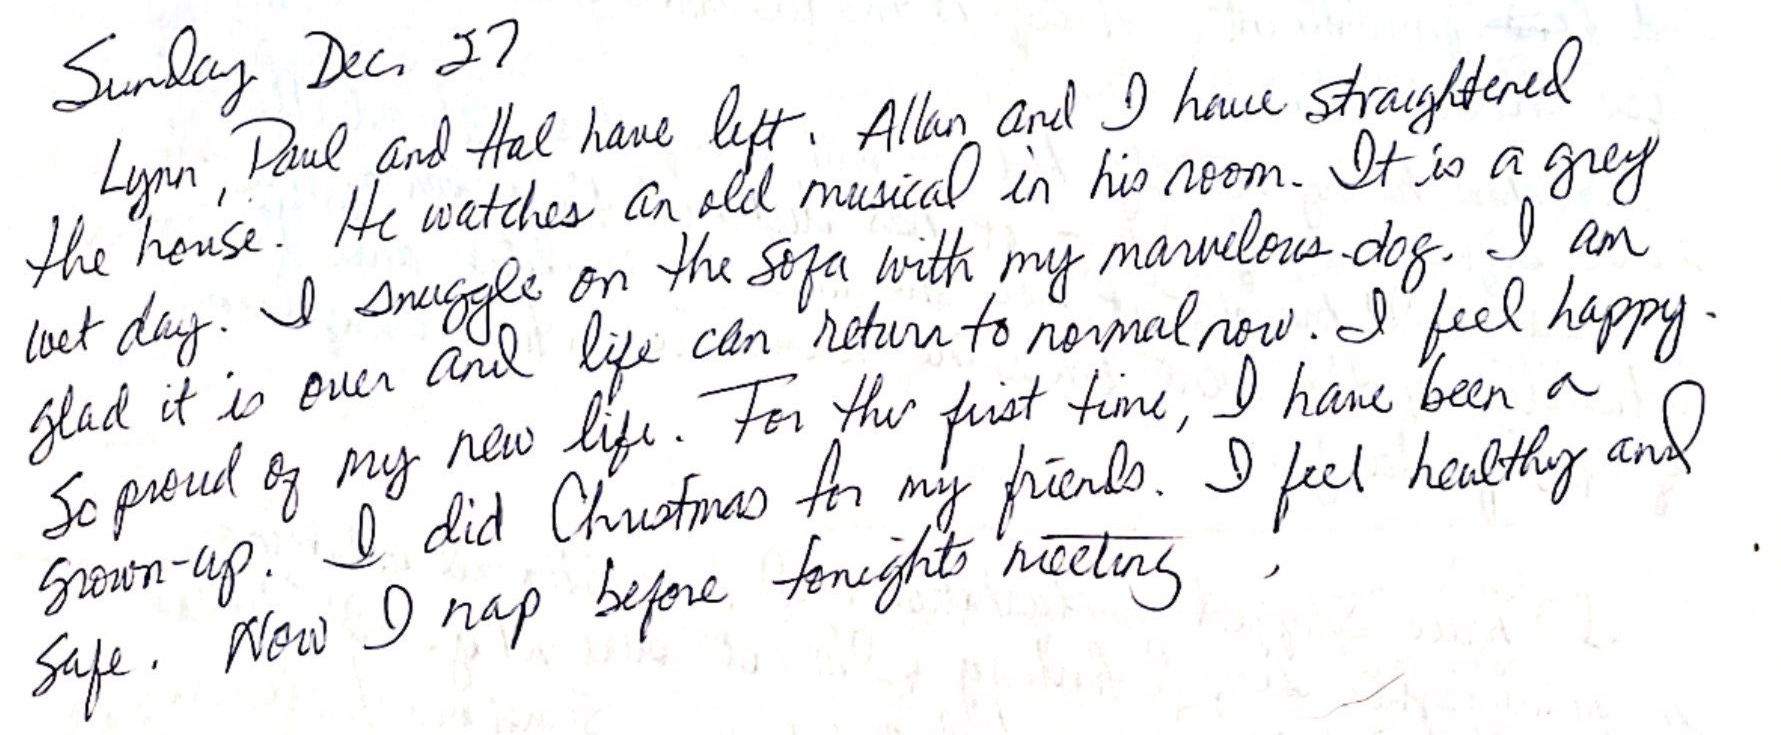 Sunday Dec. 27
Lynn, Paul and Hal have left. Allan and I have straightened
the house. He watches an old musical in his room. It is a grey
wet day. I snuggle on the sofa with my marvelous dog. I am
glad it is over and life can return to normal now. I feel happy.
So proud of my new life. For the first time, I have been a
grown-up. I did Christmas for my friends. I feel healthy and
safe. Now I nap before tonights meeting.